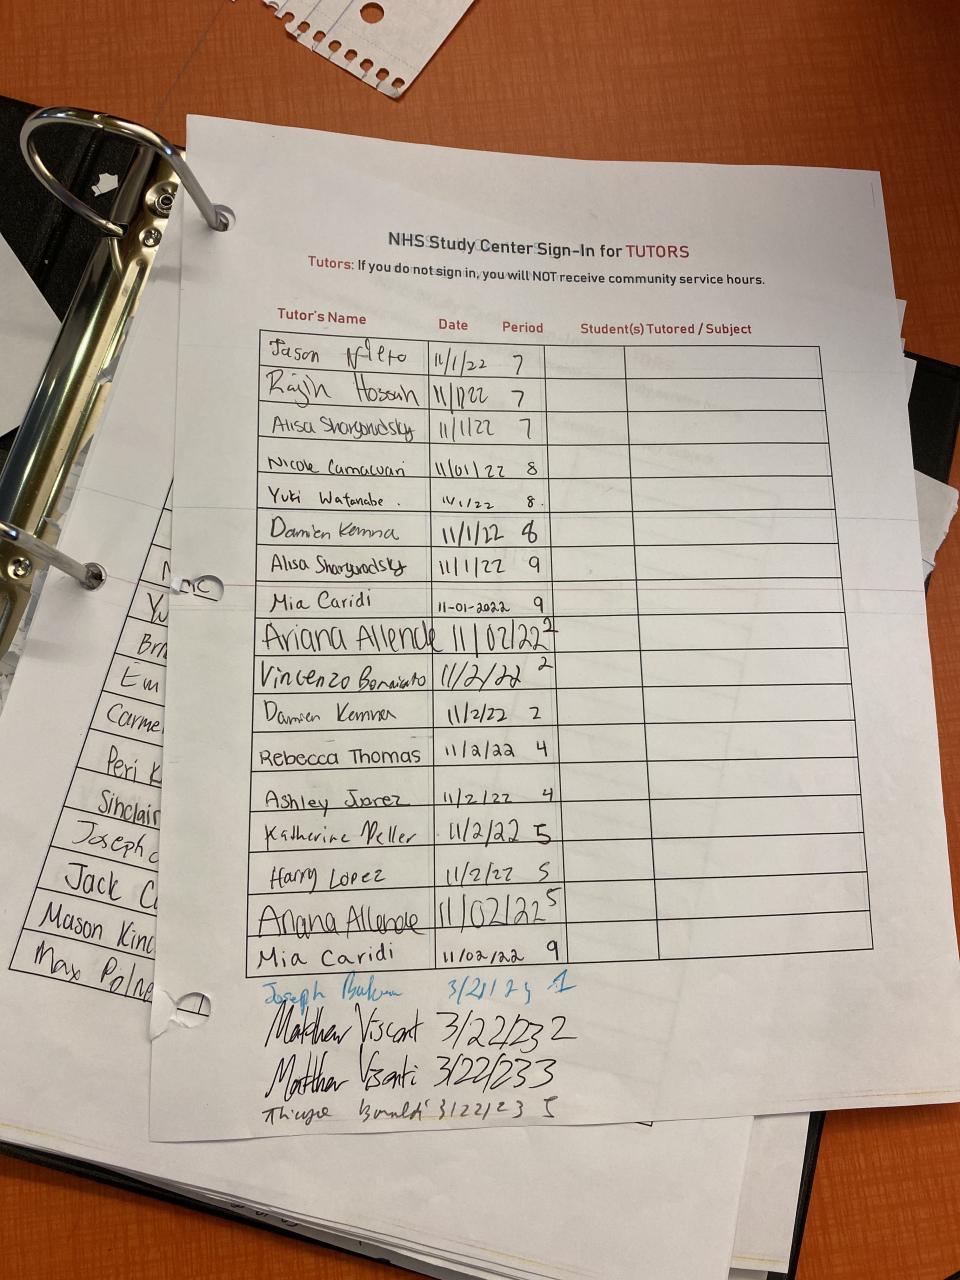 NHS Study Center Sign-In for TUTORS
Tutors: If you do not sign in, you will NOT receive community service hours.
Tutor's Name Date Period Student(s) Tutored / Subject
Jason Nieto 11/1/22 7
11/1/22 7
Alisa Shargorodsky 11/1/22 7
Nicole 11/01/22 8
Yuki Watanabe. 11/1/22 8.
Damien Kemna 11/1/22 8
Alisa Shargorodsky 11/1/22 9
Mia Caridi 11-01-2022 9
Ariana Allende 11/02/22 2
Vincenzo 11/2/22 2
Damien Kemna 11/2/22 2
Rebecca Thomas 11/2/22 4
Ashley Juarez 11/2/22 4
Katherine Peller 11/2/22 5
Harry Lopez 11/2/22 5
Ariana Allende 11/02/22 5
Mia Caridi 11/02/22 9
Joseph 1
Matthew 3/22/23 2
Matthew 3/22/23 3
3/22/23 5
Bri
Em
Carme
Peri K
Sinclair
Joseph
Jack C
Mason Kinc
Max